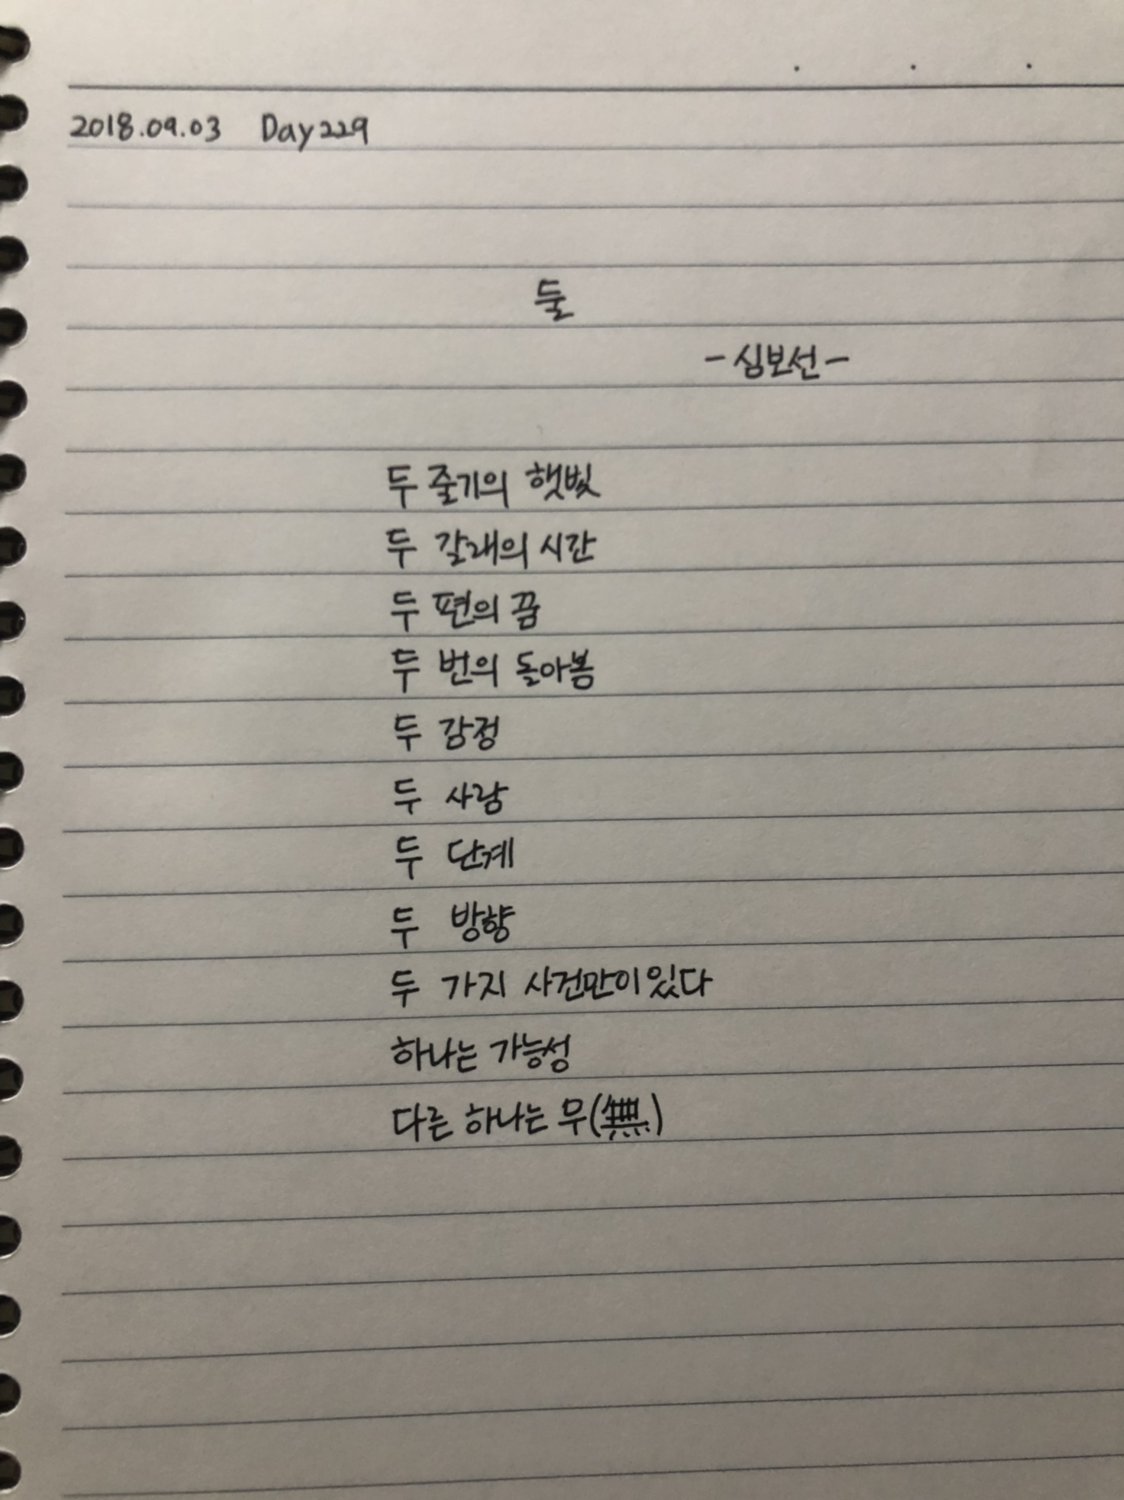 2018.09.03 Day229
둘
-심보선-
두 줄기의 햇빛
두 갈래의 시간
두 편의 꿈
두 번의 돌아봄
두 감정
두 사람
두 단계
두 방향
두 가지 사건만이 있다
하나는 가능성
다른 하나는 무(無)